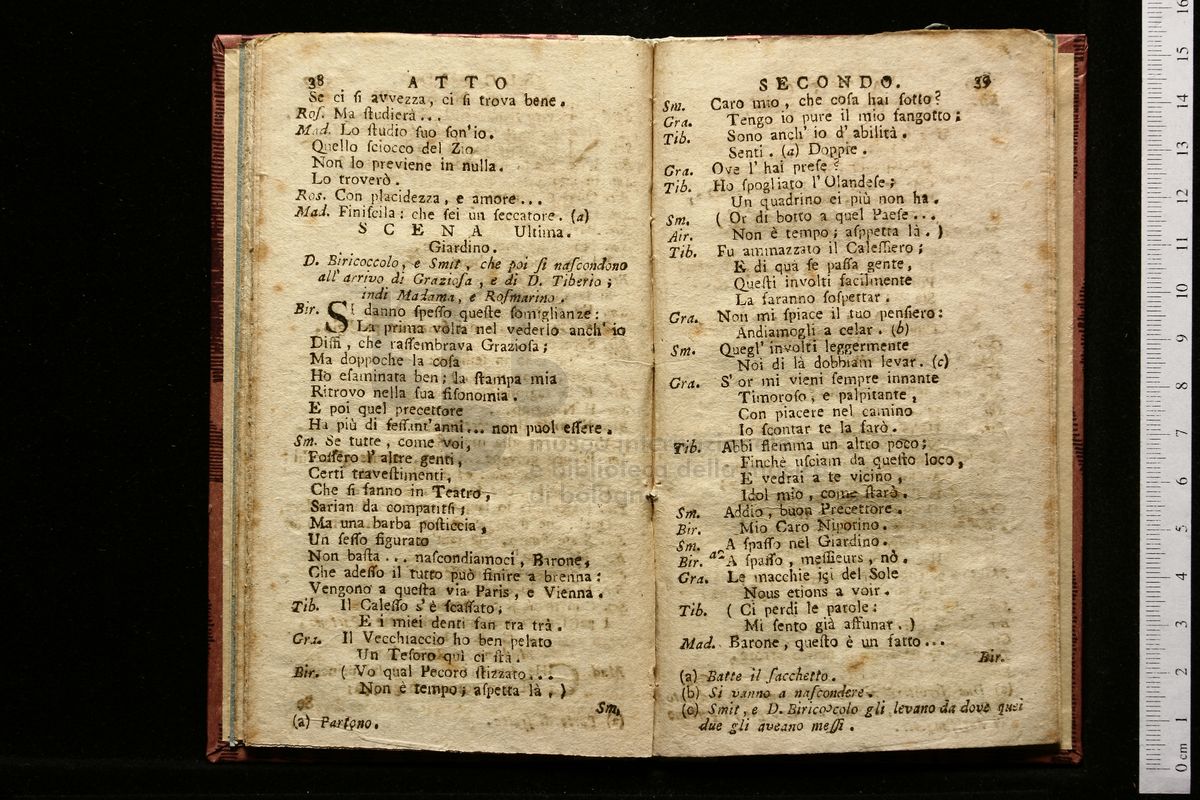 38 ATTO
Se ci ſi avvezza, ci ſi trova bene.
Roſ. Ma ſtudierà...
Mad. Lo ſtudio ſuo ſon'io.
Quello ſciocco del Zio
Non lo previene in nulla.
Lo troverò.
Ros. Con placidezza, e amore...
Mad. Finiſcila: che ſei un ſeccatore. (a)
SCENA Ultima.
Giardino.
D. Biricoccolo, e Smit, che poi ſi naſcondono
all' arrivo di Grazioſa, e di D. Tiberio;
indi Madama, e Roſmarino.
Bir. Si danno ſpeſſo queſte ſomiglianze:
La prima volta nel vederlo anch' io
Diſſi, che raſſembrava Grazioſa;
Ma doppoche la coſa
Ho eſaminata ben; la ſtampa mia
Ritrovo nella ſua fiſonomia.
E poi quel precettore
Ha più di ſeſſant'anni... non puol eſſere.
Sm. Se tutte, come voi,
Foſſero l' altre genti,
Certi traveſtimenti,
Che ſi fanno in Teatro,
Sarian da compatirſi;
Ma una barba poſticcia,
Un ſeſſo figurato
Non baſta... naſcondiamoci, Barone,
Che adeſſo il tutto può finire a brenna:
Vengono a queſta via Paris, e Vienna.
Tib. Il Caleſſo s'è ſcaſſato;
E i miei denti fan tra trà.
Gra. Il Vecchiaccio ho ben pelato
Un Teſoro quì ci ſtà.
Bir. (Vo qual Pecoro ſtizzato...
Non è tempo; aſpetta là.)
Sm.
(a) Partono.
SECONDO. 39
Sm. Caro mio, che coſa hai ſotto?
Gra. Tengo io pure il mio fangotto:
Tib. Sono anch' io d' abilità.
Senti. (a) Doppie.
Gra. Ove l' hai preſe?
Tib. Ho ſpogliato l' Olandeſe;
Un quadrino ei più non ha.
Sm. (Or di botto a quel Paeſe...
Air. Non è tempo; aſppetta là.)
Tib. Fu ammazzato il Caleſſiero;
E di quà ſe paſſa gente,
Queſti involti facilmente
La faranno ſoſpettar.
Gra. Non mi ſpiace il tuo penſiero:
Andiamogli a celar. (b)
Sm. Quegl' involti leggermente
Noi di là dobbiam levar. (c)
Gra. S' or mi vieni ſempre innante
Timoroſo, e palpitante,
Con piacere nel camino
Io ſcontar te la farò.
Tib. Abbi flemma un altro poco;
Finchè uſciam da queſto loco,
E vedrai a te vicino,
Idol mio, come ſtarò.
Sm. Addio, buon Precettore.
Bir. Mio Caro Nipotino.
Sm. A ſpaſſo nel Giardino.
Bir. a2 A ſpaſſo, meſſieurs, nò.
Gra. Le macchie del Sole
Nous etions a voir.
Tib. (Ci perdi le parole:
Mi ſento già affunar.)
Mad. Barone, queſto è un fatto...
Bir.
(a) Batte il ſacchetto.
(b) Si vanno a naſcondere.
(c) Smit, e D. Biricoccolo gli levano da dove quei
due gli aveano meſſi.
museo internazionale
e biblioteca della musica
di bologna
0 cm 1 2 3 4 5 6 7 8 9 10 11 12 13 14 15 16